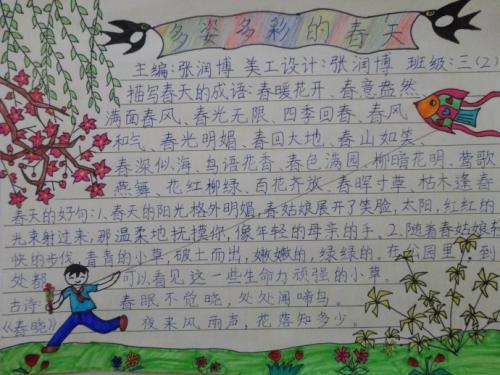 多姿多彩的春天
主编:张润博 美工设计:张润博 班级:三(2)
描写春天的成语:春暖花开、春意盎然、
满面春风、春光无限、四季回春、春风
和气、春光明媚、春回大地、春山如笑、
春深似海、鸟语花香、春色满园、柳暗花明、莺歌
燕舞、花红柳绿、百花齐放、春晖寸草、枯木逢春
春天的好句:1.春天的阳光格外明媚,春姑娘展开了笑脸,太阳,红红的
光束射过来,那温柔地抚摸你,像年轻的母亲的手。2.随着春姑娘轻
快的步伐,青青的小草,破土而出,嫩嫩的,绿绿的。在公园里,到
处都可以看见这一些生命力顽强的小草。
古诗: 春眠不觉晓,处处闻啼鸟。
《春晓》 夜来风雨声,花落知多少。